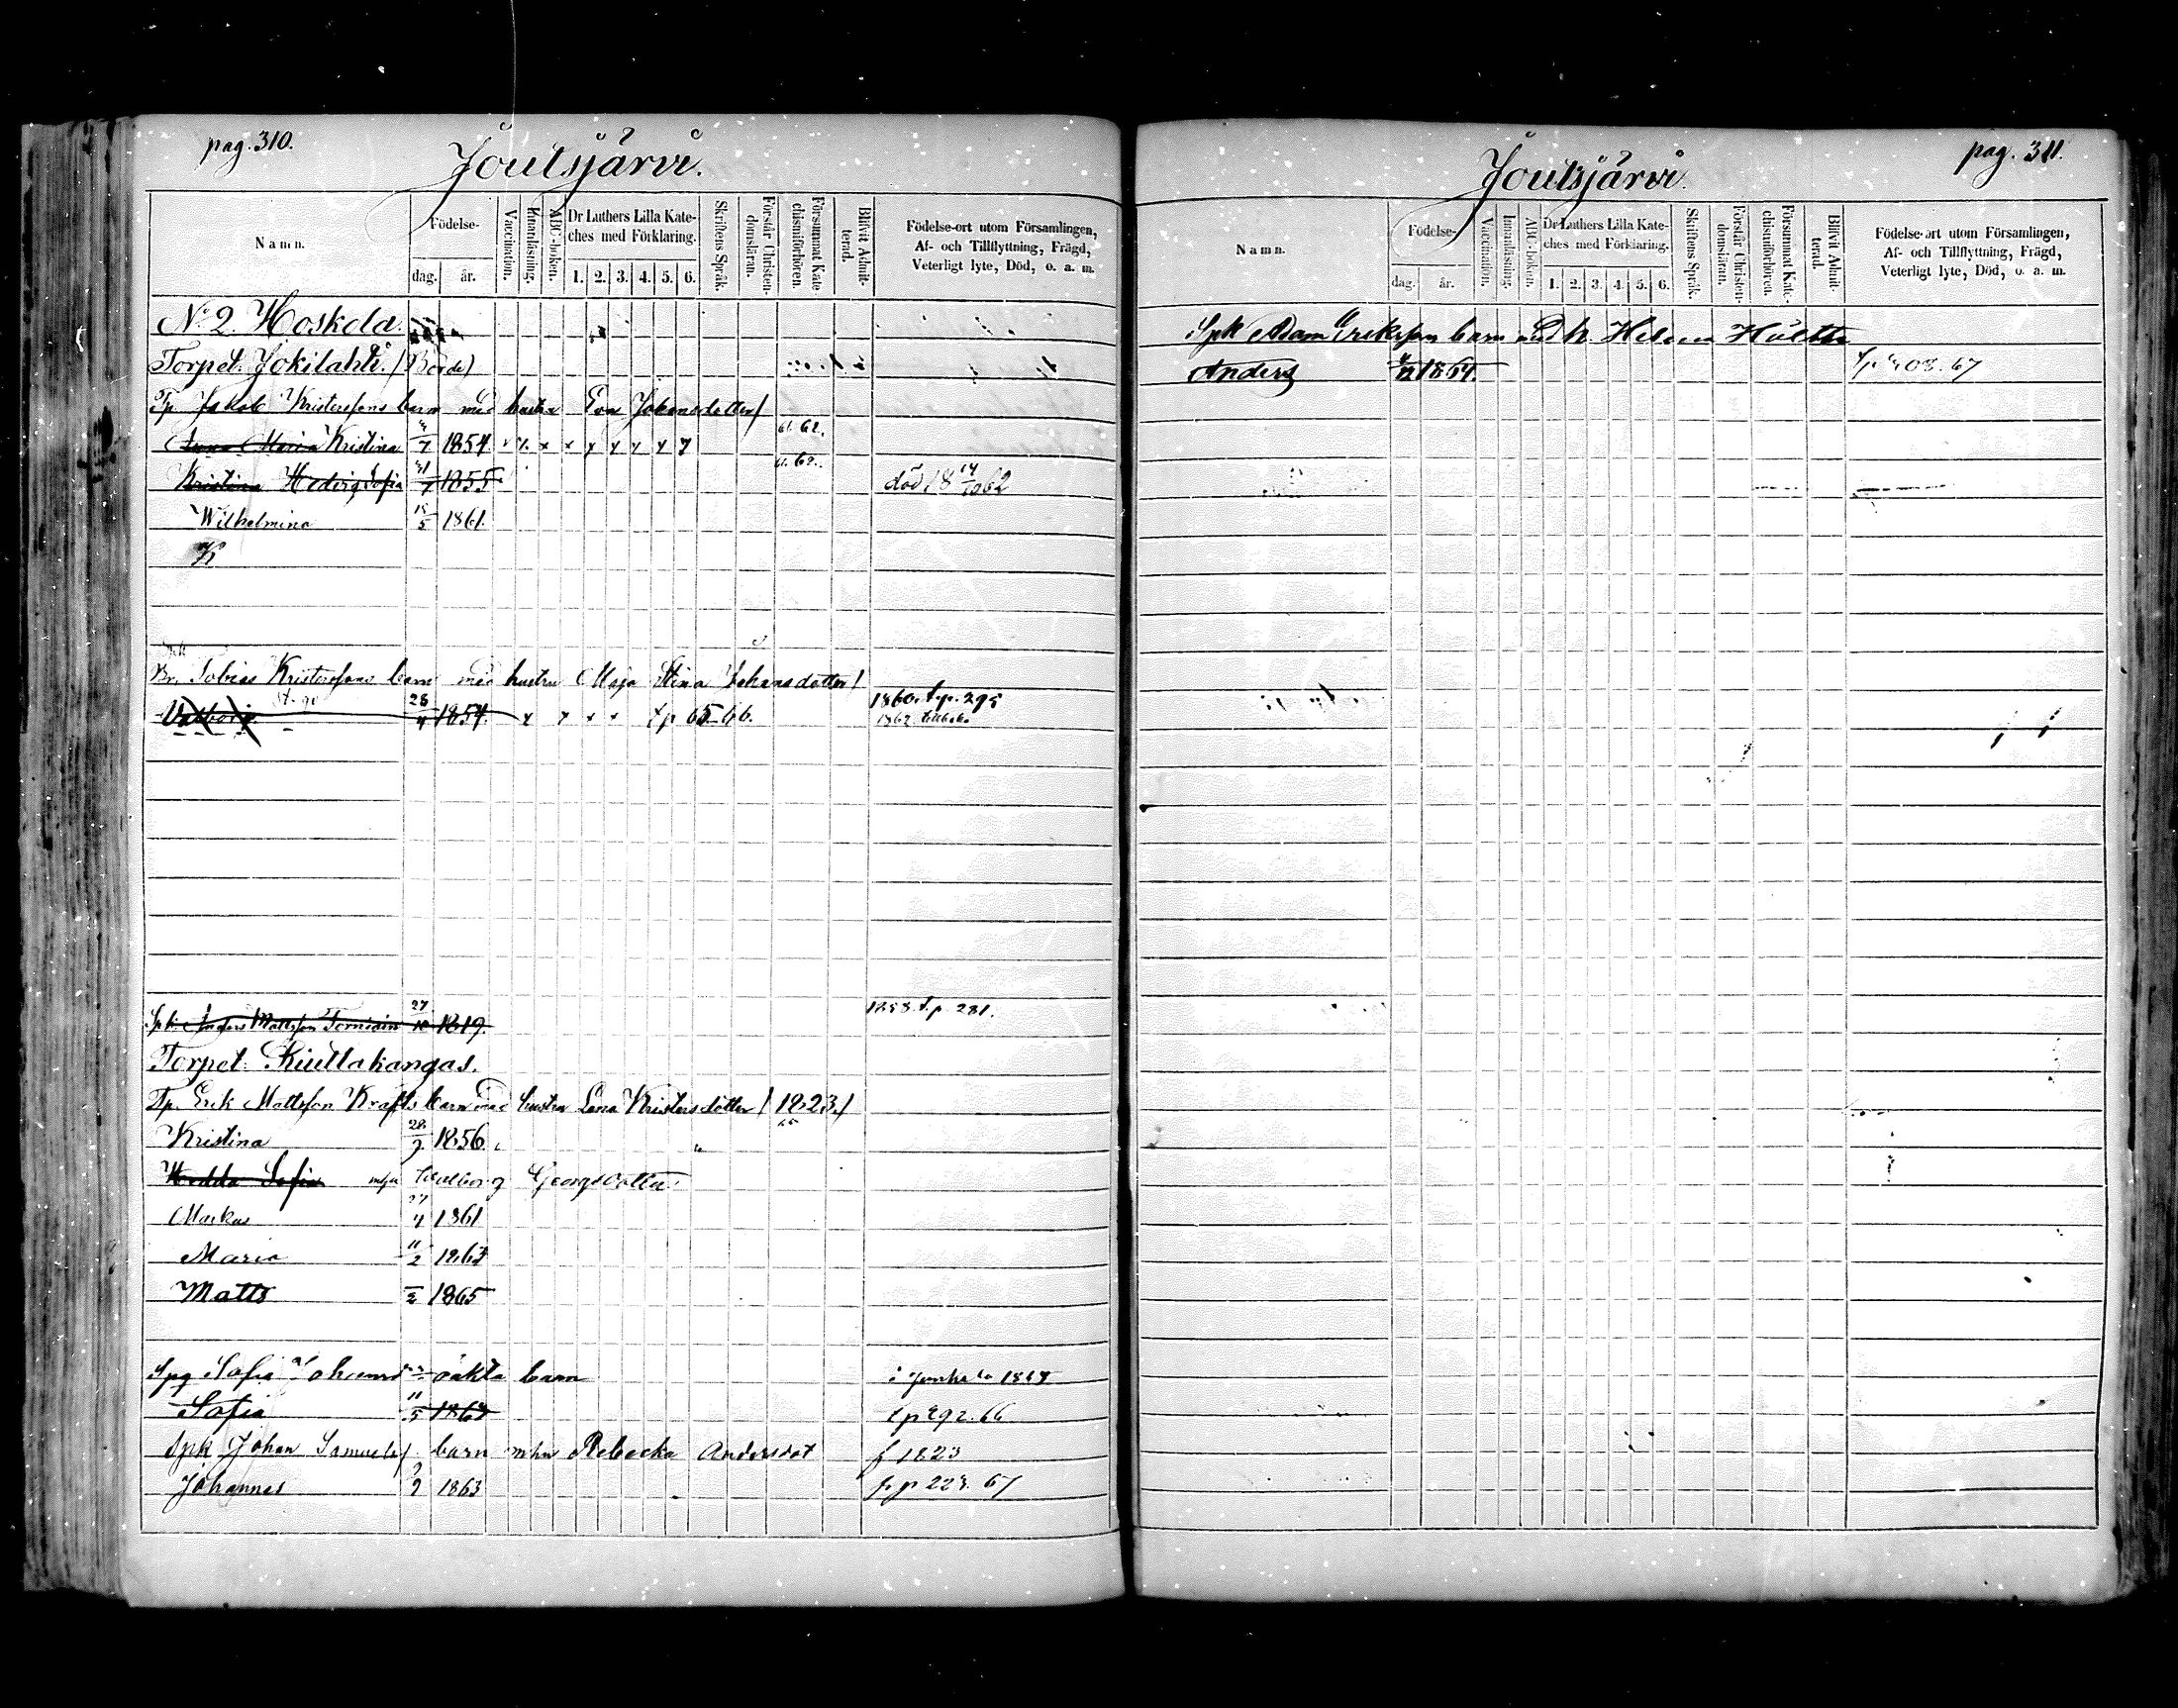 pag. 310.
Joutsjärvi.
Namn.
Födelse-
dag. år.
Vaccination.
Innanläsning.
ABC-boken.
Dr Luthers Lilla Kate-
ches med Förklaring.
1. 2. 3. 4. 5. 6.
Skriftens Språk.
Förstår Christen-
domsläran.
Försummat Kate
chismiförhören.
Blifvit Admit-
terad.
Födelse-ort utom Församlingen,
Af- och Tillflyttning, Frägd,
Veterligt lyte, Död, o. a. m.
No 2 Hoskela.
Torpet: Jokilahti.
Tp. Jakob Kristerssons barn med hustru Eva Johansdotter/
Anna Maria Kristina 7 1854 61. 62.
Kristina Hedvig Sofia 1855 61. 62. död 18 14/10 62
Wilhelmina 5 1861.
K
Tobias Kristerssons barn med hustru Maja Stina Johansdotter/
Valborg 28/4 1854. tp 65-66. 1860. t.p. 295
1862 tillbaka
Spk. Anders Mattsson Torniain 27/10 1819. 1858. t.p. 281.
Torpet: Kiultakangas.
Tp. Erik Mattsson Krafts barn med hustru Lena Kristersdotter/ 1823./
Kristina 28 1856.
Hedda Sofia Walborg Georgsdotter
Markus 27/4 1861
Maria 11/2 1863
Matts 1865
Spg Sofia oäkta barn
Sofia 11/5 1863 tp 292. 66
Spk Johan Samuels/ barn mhu Rebecka Andersdot f 1823
Johannes 1863
pag. 311.
Joutsjärvi.
Namn.
Födelse-
dag. år.
Vaccination.
Innanläsning.
ABC-boken.
Dr Luthers Lilla Kate-
ches med Förklaring.
1. 2. 3. 4. 5. 6.
Skriftens Språk.
Förstår Christen-
domsläran.
Försummat Kate-
chismiförhören.
Blifvit Admit-
terad.
Födelse-ort utom Församlingen,
Af- och Tillflyttning, Frägd,
Veterligt lyte, Död, o. a. m.
Spk Adam Eriksson barn med h. Helena
Anders 12 1864.